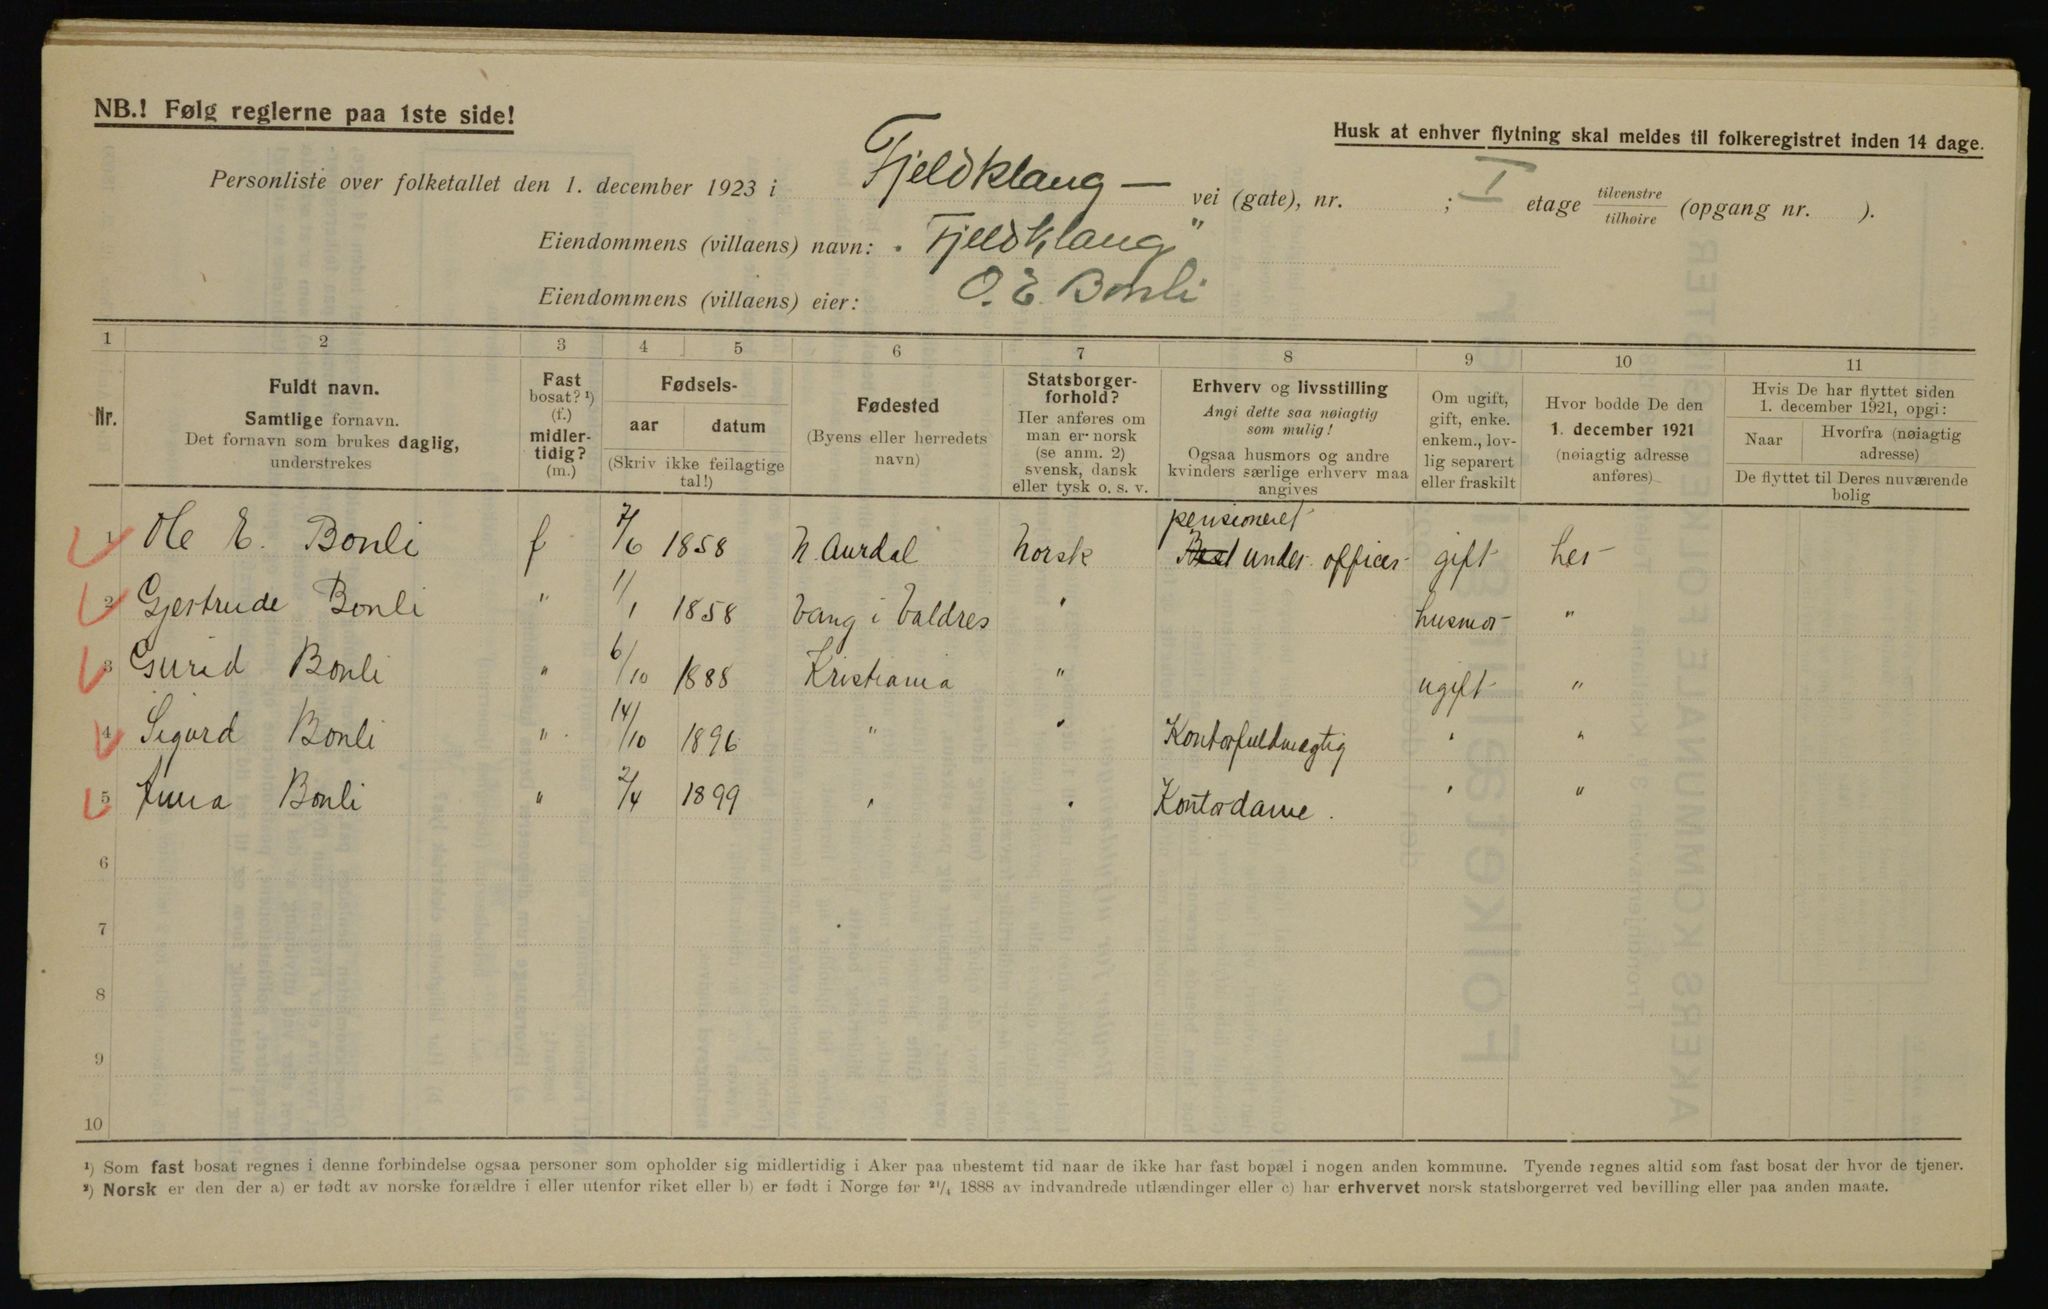 NB.! Følg reglerne paa 1ste side!
Husk at enhver flytning skal meldes til folkeregistret inden 14 dage.
Personliste over folketallet den 1. december 1923 i Fjeldklang — vei (gate), nr. ; I etage tilvenstre / tilhøire (opgang nr. ).
Eiendommens (villaens) navn: "Fjeldklang"
Eiendommens (villaens) eier: O. E. Bonli
1 2 3 4 5 6 7 8 9 10 11
Nr.
Fuldt navn.
Samtlige fornavn.
Det fornavn som brukes daglig,
understrekes
Fast
bosat? ¹)
(f.)
midler-
tidig?
(m.)
Fødsels-
aar datum
(Skriv ikke feilagtige
tal!)
Fødested
(Byens eller herredets
navn)
Statsborger-
forhold?
Her anføres om
man er norsk
(se anm. 2)
svensk, dansk
eller tysk o. s. v.
Erhverv og livsstilling
Angi dette saa nøiagtig
som mulig!
Ogsaa husmors og andre
kvinders særlige erhverv maa
angives
Om ugift,
gift, enke.
enkem., lov-
lig separert
eller fraskilt
Hvor bodde De den
1. december 1921
(nøiagtig adresse
anføres)
Hvis De har flyttet siden
1. december 1921, opgi:
Naar Hvorfra (nøiagtig
adresse)
De flyttet til Deres nuværende
bolig
pensioneret
1 Ole E. Bonli f 7/6 1858 N. Aurdal Norsk under officer gift her
2 Gjertrude Bonli " 1/1 1858 Vang i Valdres " husmor "
3 Gurid Bonli " 6/10 1888 Kristiania " ugift "
4 Sigurd Bonli " 14/10 1896 " " Kontorfuldmægtig " "
5 Anna Bonli " 2/4 1899 " " Kontordame. " "
6
7
8
9
10
¹) Som fast bosat regnes i denne forbindelse ogsaa personer som opholder sig midlertidig i Aker paa ubestemt tid naar de ikke har fast bopæl i nogen anden kommune. Tyende regnes altid som fast bosat der hvor de tjener.
²) Norsk er den der a) er født av norske forældre i eller utenfor riket eller b) er født i Norge før ²¹/₄ 1888 av indvandrede utlændinger eller c) har erhvervet norsk statsborgerret ved bevilling eller paa anden maate.